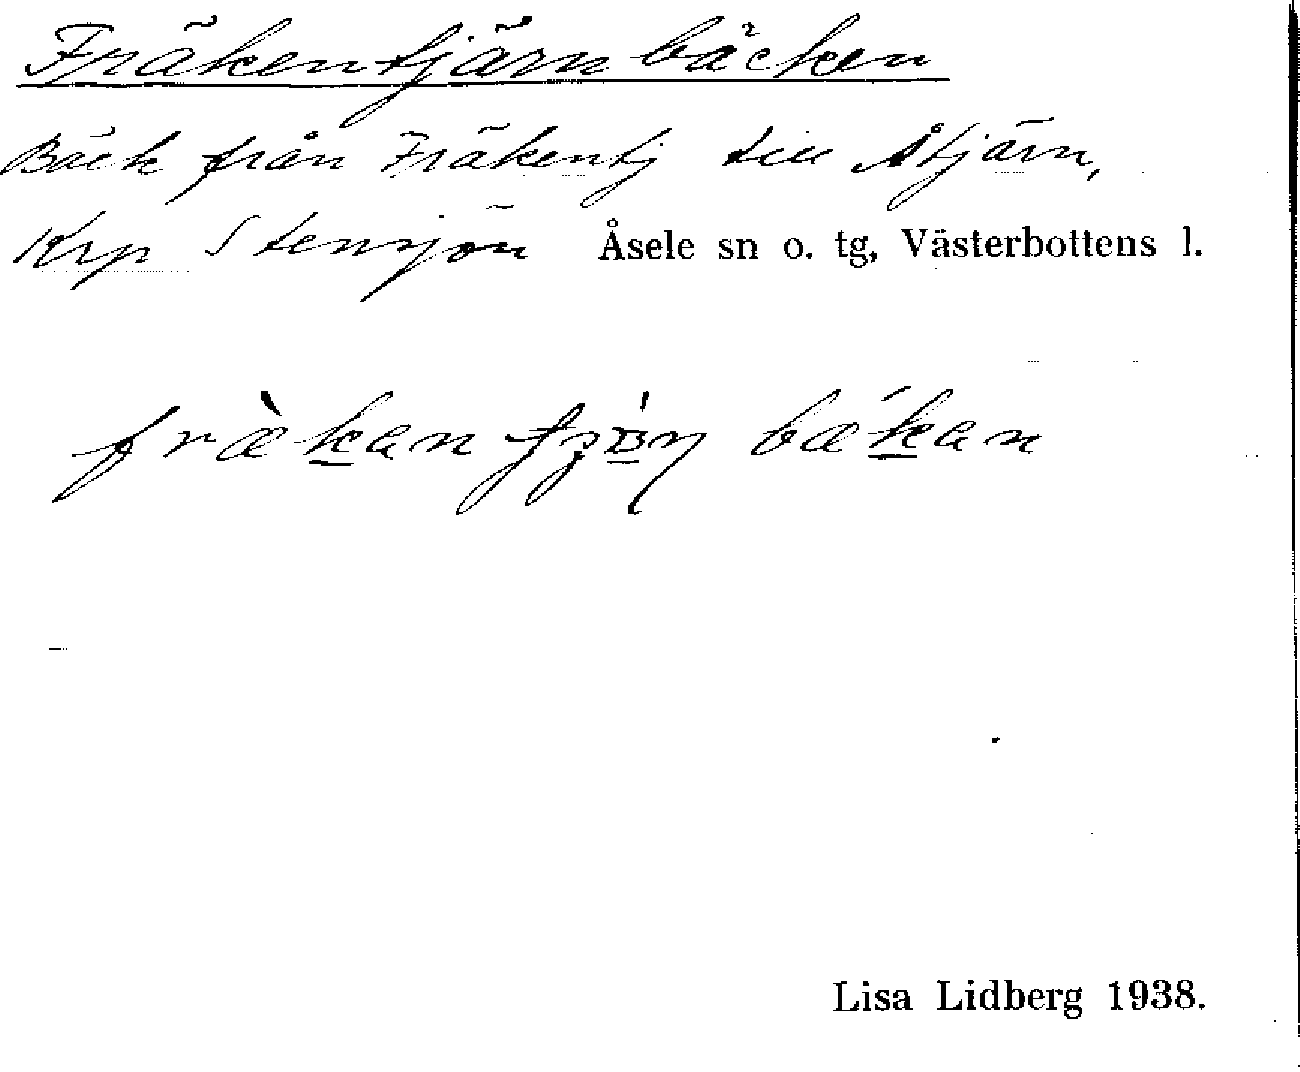 Fräkentjärnbäcken
Bäck från Fräkentj till Åtjärn,
Krp Stensjön Åsele sn o. tg, Västerbottens l.
frækan bækan
Lisa Lidberg 1938.